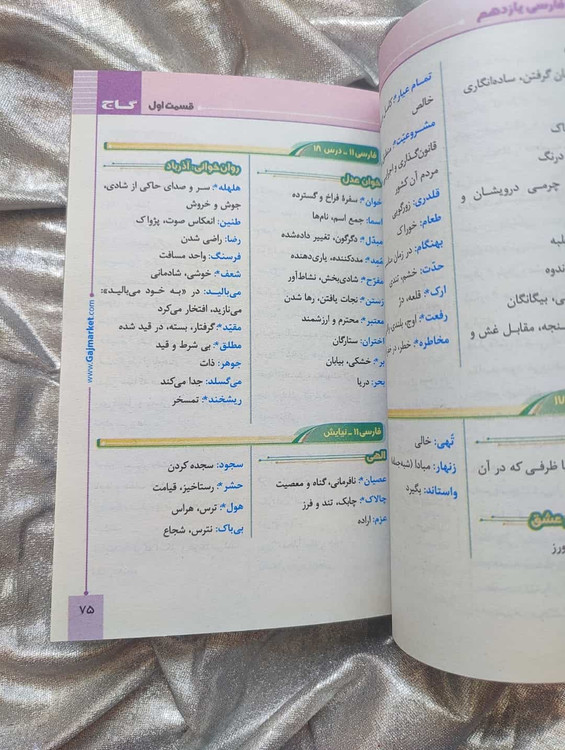 فارسی یازدهم
گرفتن، ساده‌انگاری
درنگ
چرمی درویشان و
بیگانگان
سنجه، مقابل غش و
۱۷
ظرفی که در آن
عشق
تمام عیار*:
خالص
مشروعیّت*:
قانون‌گذاری و اجرا
مردم آن کشور
قلدری: زورگویی
طعام: خوراک
بهنگام: در زمان
حدّت: خشم، تندی
ارک*: قلعه، دژ
رفعت*: اوج، بلندی
مخاطره*: خطر،
تُهی: خالی
زنهار: مبادا
واستاند: بگیرد
قسمت اول
گاج
فارسی ۱۱ ـ درس ۱۸
خوان عدل
خوان*: سفرهٔ فراخ و گسترده
اسما: جمع اسم، نام‌ها
مبدّل*: دگرگون، تغییر داده‌شده
مُمِد*: مددکننده، یاری‌دهنده
مفرّح*: شادی‌بخش، نشاط‌آور
رَستن: نجات یافتن، رها شدن
معتبر*: محترم و ارزشمند
اختران: ستارگان
بر*: خشکی، بیابان
بحر: دریا
روان‌خوانی: آذرباد
هلهله*: سر و صدای حاکی از شادی،
جوش و خروش
طنین: انعکاس صوت، پژواک
رضا: راضی شدن
فرسنگ: واحد مسافت
شعف*: خوشی، شادمانی
می‌بالید: در «به خود می‌بالید»:
می‌نازید، افتخار می‌کرد
مقیّد*: گرفتار، بسته، در قید شده
مطلق*: بی شرط و قید
جوهر: ذات
می‌گسلد: جدا می‌کند
ریشخند*: تمسخر
فارسی ۱۱ ـ نیایش
الهی
عصیان*: نافرمانی، گناه و معصیت
چالاک*: چابک، تند و فرز
عزم: اراده
سجود: سجده کردن
حشر*: رستاخیز، قیامت
هول*: ترس، هراس
بی‌باک: نترس، شجاع
www.Gajmarket.com
۷۵